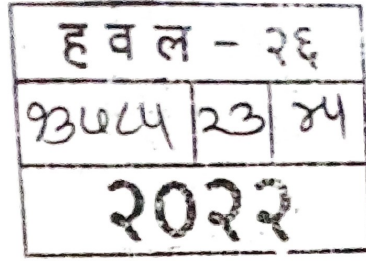 हवल - २६
१३७८५ | २३ | ४५
२०२२